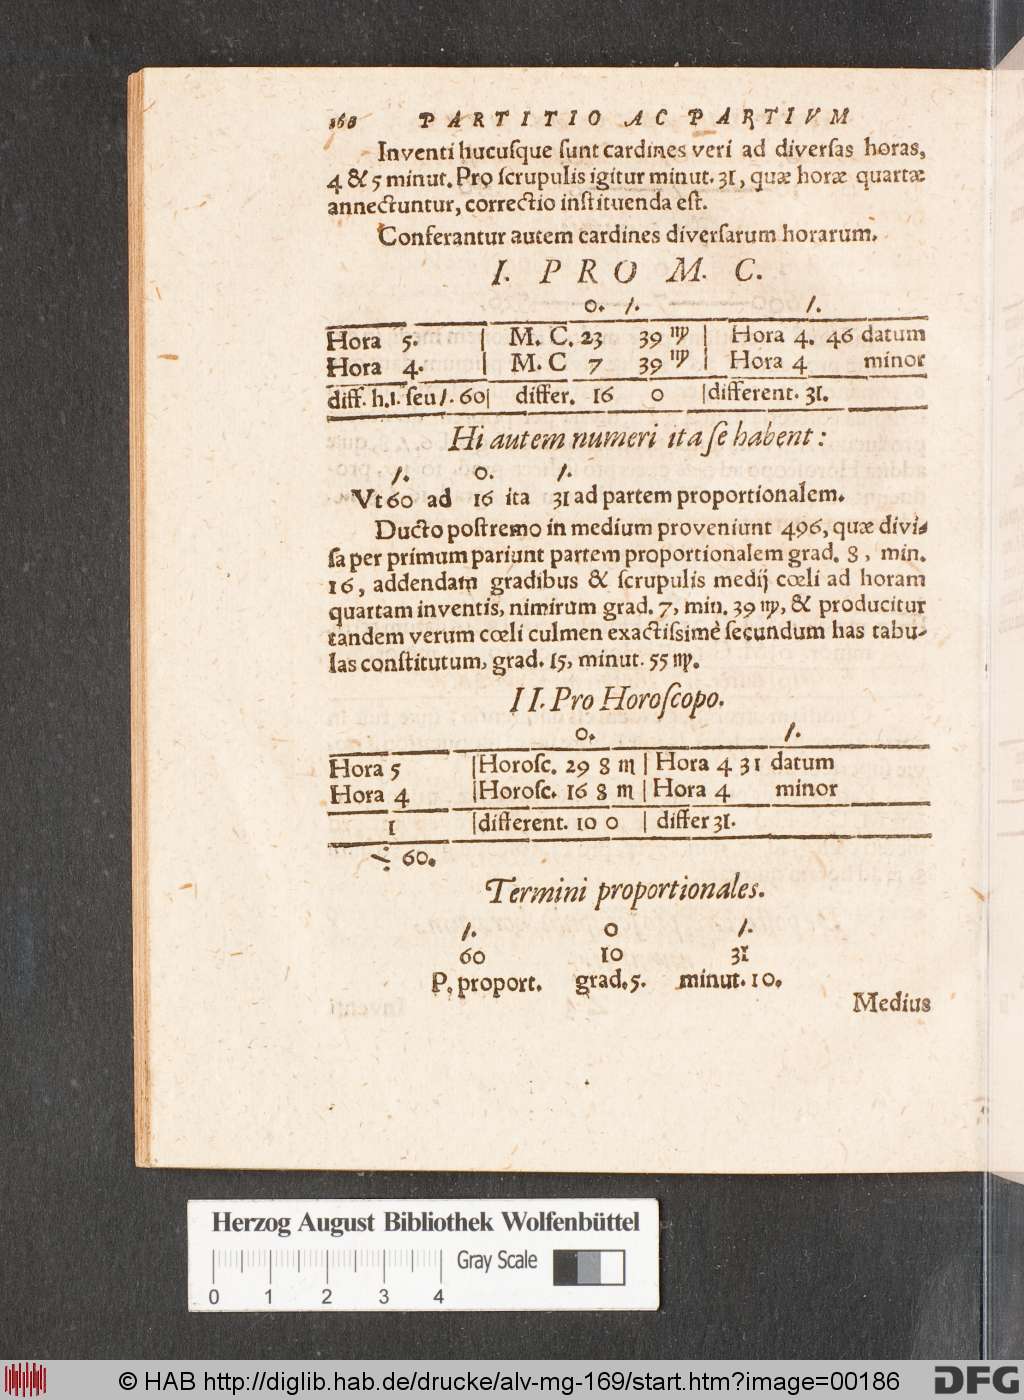 168 PARTITIO AC PARTIVM
Inventi hucuſque ſunt cardines veri ad diverſas horas,
4 & 5 minut. Pro ſcrupulis igitur minut. 31, quæ horæ quartæ
annectuntur, correctio inſtituenda eſt.
Conferantur autem cardines diverſarum horarum.
I. PRO M. C.
0. /. /.
Hora 5. | M. C. 23 39 ♍ | Hora 4. 46 datum
Hora 4. | M. C 7 39 ♍ | Hora 4 minor
diff. h.1. ſeu /. 60| differ. 16 0 |different. 31.
Hi autem numeri ita ſe habent:
/. 0. /.
Vt 60 ad 16 ita 31 ad partem proportionalem.
Ducto poſtremo in medium proveniunt 496, quæ divi-
ſa per primum pariunt partem proportionalem grad. 8, min.
16, addendam gradibus & ſcrupulis medij cœli ad horam
quartam inventis, nimirum grad. 7, min. 39 ♍, & producitur
tandem verum cœli culmen exactiſsimè ſecundum has tabu-
las conſtitutum, grad. 15, minut. 55 ♍.
II. Pro Horoſcopo.
0. /.
Hora 5 |Horoſc. 29 8 ♏ | Hora 4 31 datum
Hora 4 |Horoſc. 16 8 ♏ | Hora 4 minor
1 |different. 10 0 | differ 31.
÷ 60.
Termini proportionales.
/. 0 /.
60 10 31
P. proport. grad. 5. minut. 10.
Medius
Herzog August Bibliothek Wolfenbüttel
Gray Scale
0 1 2 3 4
© HAB http://diglib.hab.de/drucke/alv-mg-169/start.htm?image=00186
DFG